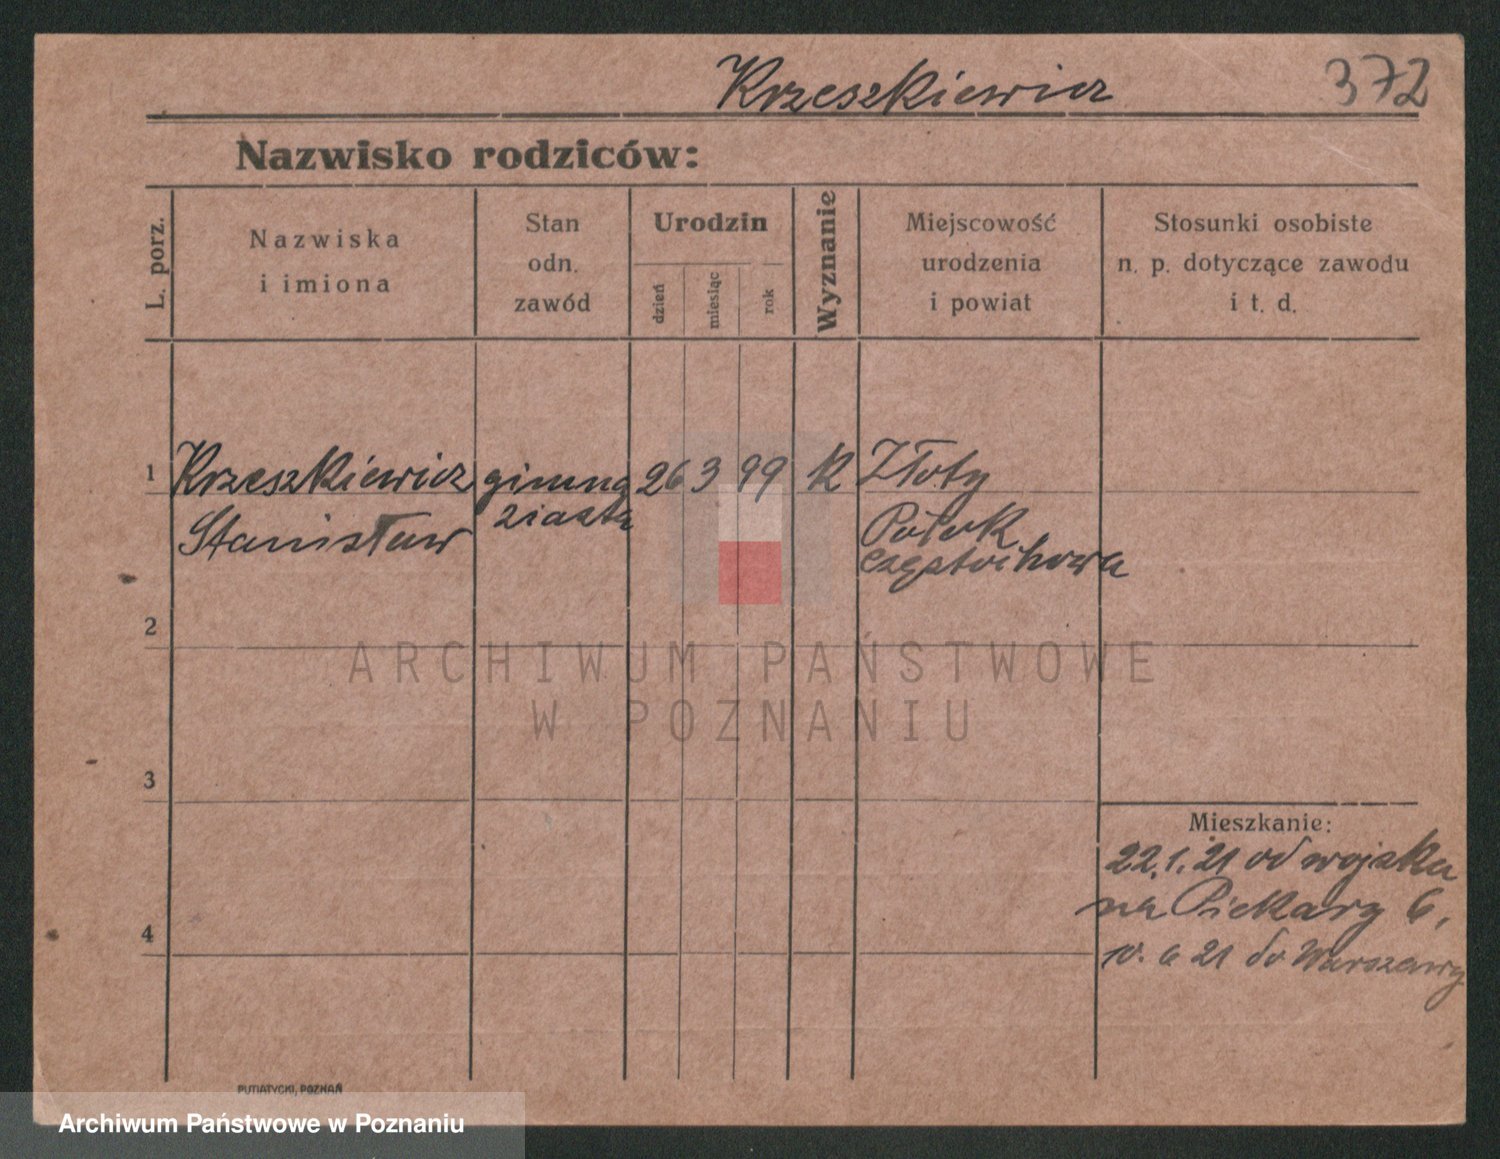 Krzeszkiewicz 372
Nazwisko rodziców:
L. porz.
Nazwiska
i imiona
Stan
odn.
zawód
Urodzin
dzień
miesiąc
rok
Wyznanie
Miejscowość
urodzenia
i powiat
Stosunki osobiste
n. p. dotyczące zawodu
i t. d.
1 Krzeszkiewicz gimna 26 3 99 K Złoty
Stanisław ziasta Potok
Częstochowa
2
ARCHIWUM PAŃSTWOWE
W POZNANIU
3
Mieszkanie:
22.1.21 od wojska
na Piekary 6,
4
10. 6 21 do Warszawy
PUTIATYCKI, POZNAŃ
Archiwum Państwowe w Poznaniu